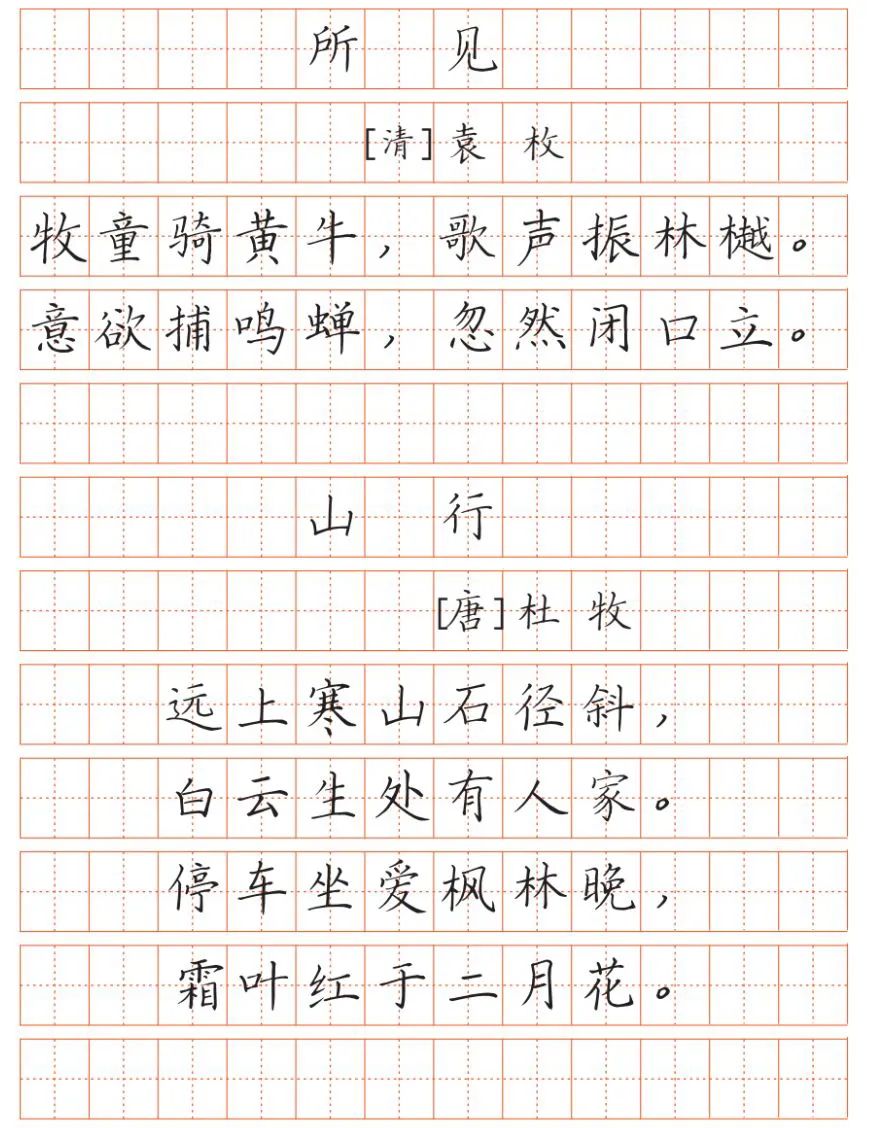 所见
[清]袁枚
牧童骑黄牛，歌声振林樾。
意欲捕鸣蝉，忽然闭口立。
山行
[唐]杜牧
远上寒山石径斜，
白云生处有人家。
停车坐爱枫林晚，
霜叶红于二月花。